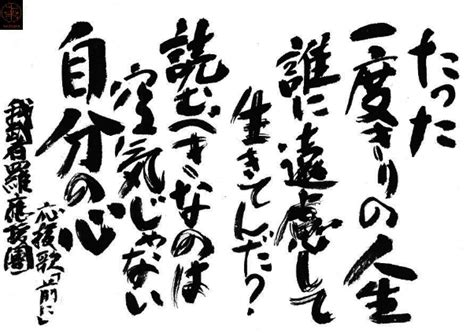 たった
一度きりの人生
誰に遠慮して
生きてんだ?
読むべきなのは
空気じゃない
自分の心
我武者羅應援團
応援歌「前に」